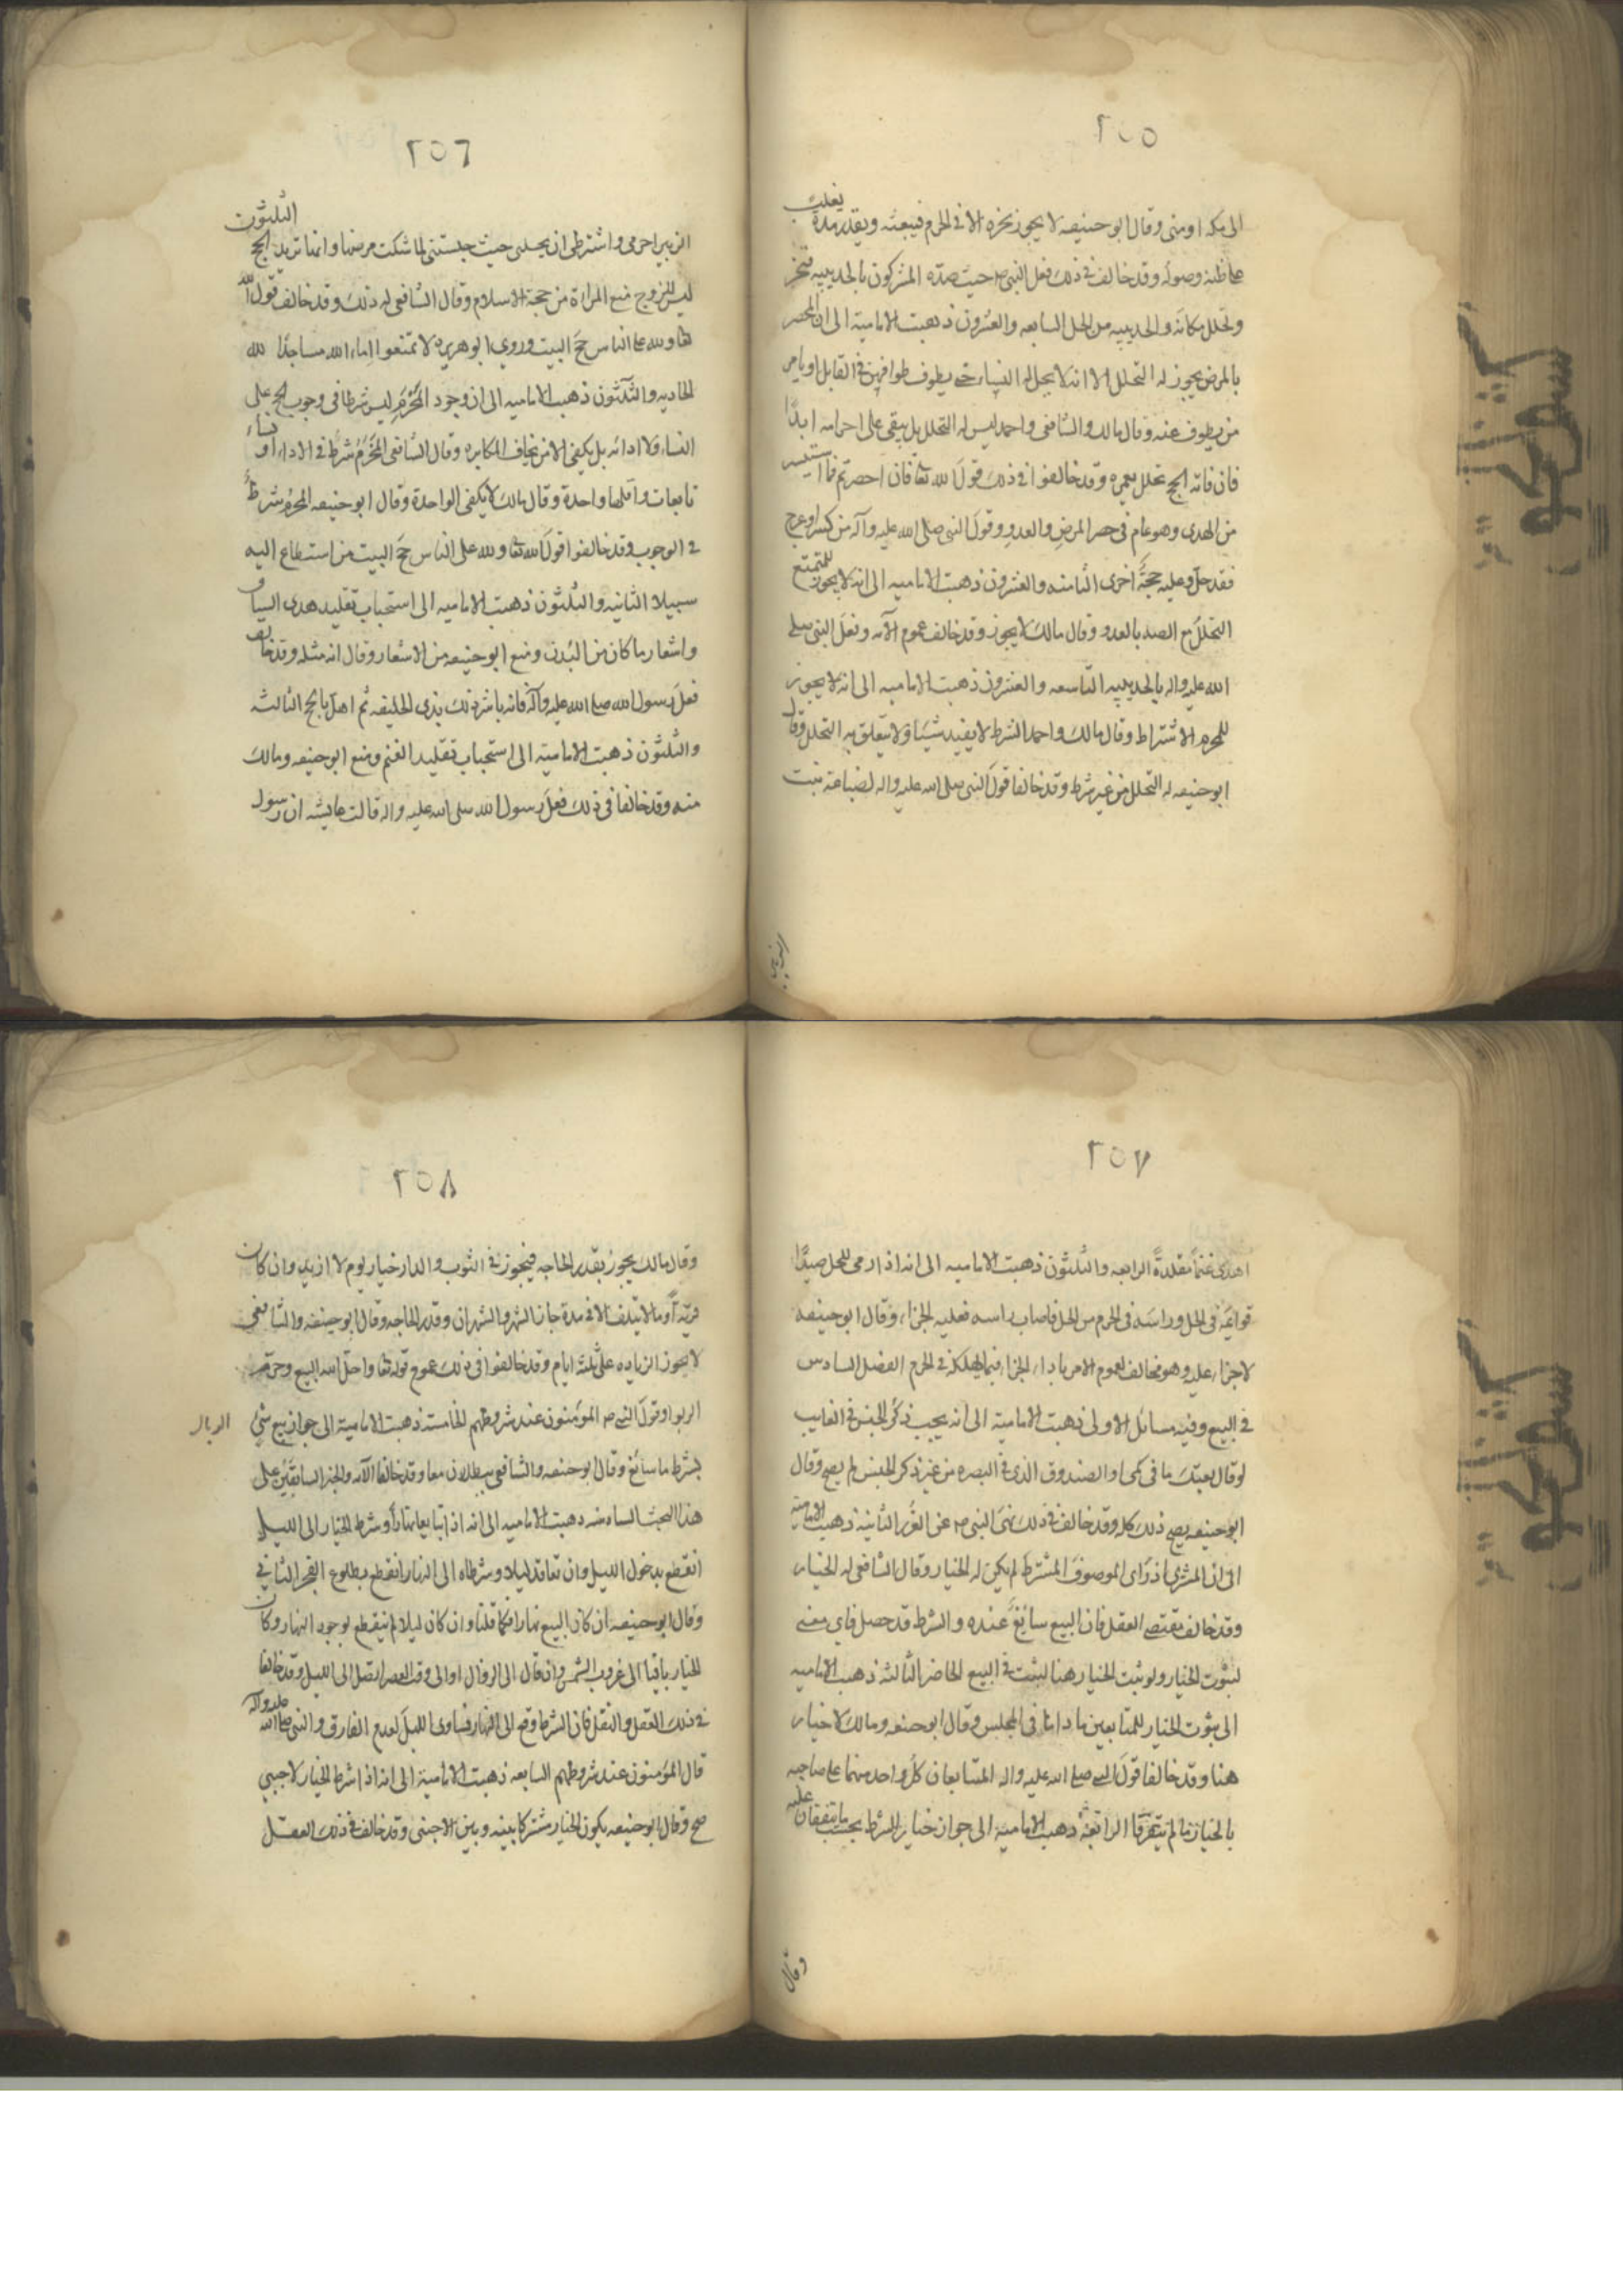 ٢٥٥
الى مكه او منى وقال ابو حنيفه لا يجوز نحره الا فى الحرم فيبعثه ويقدر مدة يغلب
على ظنه وصوله وقد خالف فى ذلك فعل النبى ص حيث صده المشركون بالحديبيه فنحر
وتحلل مكانه والحديبيه من الحل السابعه والعشرون ذهبت الاماميه الى ان المحصر
بالمرض يجوز له التحلل الا انه لا يحل له النساء حتى يطوف طوافهن فى القابل او يامر
من يطوف عنه وقال مالك والشافعى واحمد ليس له التحلل بل يبقى على احرامه ابدًا
فان فاته الحج تحلل بعمره وقد خالفوا فى ذلك قولَ الله تعا فان احصرتم فما استيسر
من الهدى وهو عام فى حصر المرضِ والعدوِ وقولَ النبى صلى الله عليه وآله من كسر او عرج
فقد حلّ وعليه حجةٌ اخرى الثامنه والعشرون ذهبت الاماميه الى انه لا يجوز للمتمتع
التحللَ مع الصد بالعدو وقال مالك لا يجوز وقد خالف عموم الآيه وفعلَ النبى صلى
الله عليه واله بالحديبيه التاسعه والعشرون ذهبت الاماميه الى انه لا يجوز
للمحرم الاشتراط وقال مالك واحمد الشرط لا يفيد شيئا ولا يتعلق به التحلل وقال
ابو حنيفه له التحلل من غير شرط وقد خالفا قولَ النبى صلى الله عليه واله لضباعة بنت
الزبير
٢٥٦
الزبير احرمى واشترطى ان يحلنى حيث حبستنى لما شكت مرضها وانما تريد الحج الثلثون
ليس للزوج منع المراة من حجة الاسلام وقال الشافعى له ذلك وقد خالف قول الله
تعا ولله على الناس حج البيت وروى ابو هريره لا تمنعوا اِماء الله مساجدَ الله
الحاديه والثلثون ذهبت الاماميه الى ان وجود المَحْرَمِ ليس شرطا فى وجوب الحج على
النساء ولا ادائه بل يكفى الامن بخاف المكابره وقال الشافعى المَحْرَمُ شرطٌ فى الاداء او نساء
تابعات واقلها واحدة وقال مالك لا يكفى الواحدة وقال ابو حنيفه المحرمُ شرطٌ
فى الوجوب وقد خالفوا قولَ الله تعا ولله على الناس حج البيت من استطاع اليه
سبيلا الثانيه والثلثون ذهبت الاماميه الى استحباب تقليد هدى السياق
واشعار ما كان من البُدن ومنع ابو حنيفه من الاشعار وقال انه مثله وقد خالف
فعلَ رسول الله صلى الله عليه وآله فانه باشر ذلك بذى الحليفه ثم اهل بالحج الثالثه
والثلثون ذهبت الاماميه الى استحباب تقليد الغنم ومنع ابو حنيفه ومالك
منه وقد خالفا فى ذلك فعلَ رسول الله صلى الله عليه واله قالت عايشه ان رسول
٢٥٧
اهدى غنماً مقلدةً الرابعه والثلثون ذهبت الاماميه الى انه اذا رمى المحل صيدًا
قوائمه فى الحل وراسَه فى الحرم من الحل فاصاب راسه فعليه الجزاء وقال ابو حنيفه
لا جزاء عليه وهو مخالف لعموم الامر باداء الجزاء فيما يهلكه فى الحرم الفصل السادس
فى البيع وفيه مسائل الاولى ذهبت الاماميه الى انه يجب ذكر الجنس فى الغايب
لو قال بعتك ما فى كمى او الصندوق الذى فى البصره من غير ذكر الجنس لم يصح وقال
ابو حنيفه يصح ذلك كله وقد خالف فى ذلك نهىَ النبى ص عن الغرر الثانية ذهبت الاماميه
الى ان المشترى اذ راى الموصوف المشترط لم يكن له الخيار وقال الشافعى له الخيار
وقد خالف مقتضى العقل فان البيع سائغٌ عنده والشرط قد حصل فاى معنى
لثبوت الخيار ولو ثبت الخيار هنا لثبت فى البيع الحاضر الثالثه ذهبت الاماميه
الى ثبوت الخيار للمتابعين ما داما فى المجلس وقال ابو حنيفه ومالك لا خيار
هنا وقد خالفا قولَ النبى صلى الله عليه واله المتبايعان كل واحد منهما على صاحبه
بالخيار ما لم يتفرقا الرابعه ذهبت الاماميه الى جواز خيار الشرط بحسب ما يتفقان عليه
وقال
٢٥٨
وقال مالك يجوز بقدر الحاجه فيجوز فى الثوب والدار خيار يوم لا ازيد وان كان
قريةً او ما لا يتلف الا فى مدة جاز الشهر والشهران وقدر الحاجه وقال ابو حنيفه والشافعى
لا يجوز الزياده على ثلثة ايام وقد خالفوا فى ذلك عموم قوله تعا واحل الله البيع وحرم
الربوا وقولَ النبى ص المؤمنون عند شروطهم الخامسة ذهبت الاماميه الى جواز بيع شى
بشرط ما سائغ وقال ابو حنيفه والشافعى يبطلان معا وقد خالفا الآيه والخبر السابقَين على
هذا البحث السادسه ذهبت الاماميه الى انه اذا تبايعا نهاراً وشرط الخيار الى الليل
انقطع بدخول الليل وان تعاقدا ليلا وشرطاه الى النهار انقطع بطلوع الفجر الثانى
وقال ابو حنيفه ان كان البيع نهارا فكما قلنا وان كان ليلا لم ينقطع بوجود النهار وكان
الخيار باقيا الى غروب الشمس وان قال الى الزوال او الى وقت العصر اتصل الى الليل وقد خالفا
فى ذلك العقل والنقل فان الشرط وقع الى النهار فساوى الليلَ لعدم الفارق والنبى صلى الله عليه وآله
قال المؤمنون عند شروطهم السابعه ذهبت الاماميه الى انه اذا شرط الخيار لاجنبى
صح وقال ابو حنيفه يكون الخيار مشتركا بينه وبين الاجنبى وقد خالف فى ذلك العقل